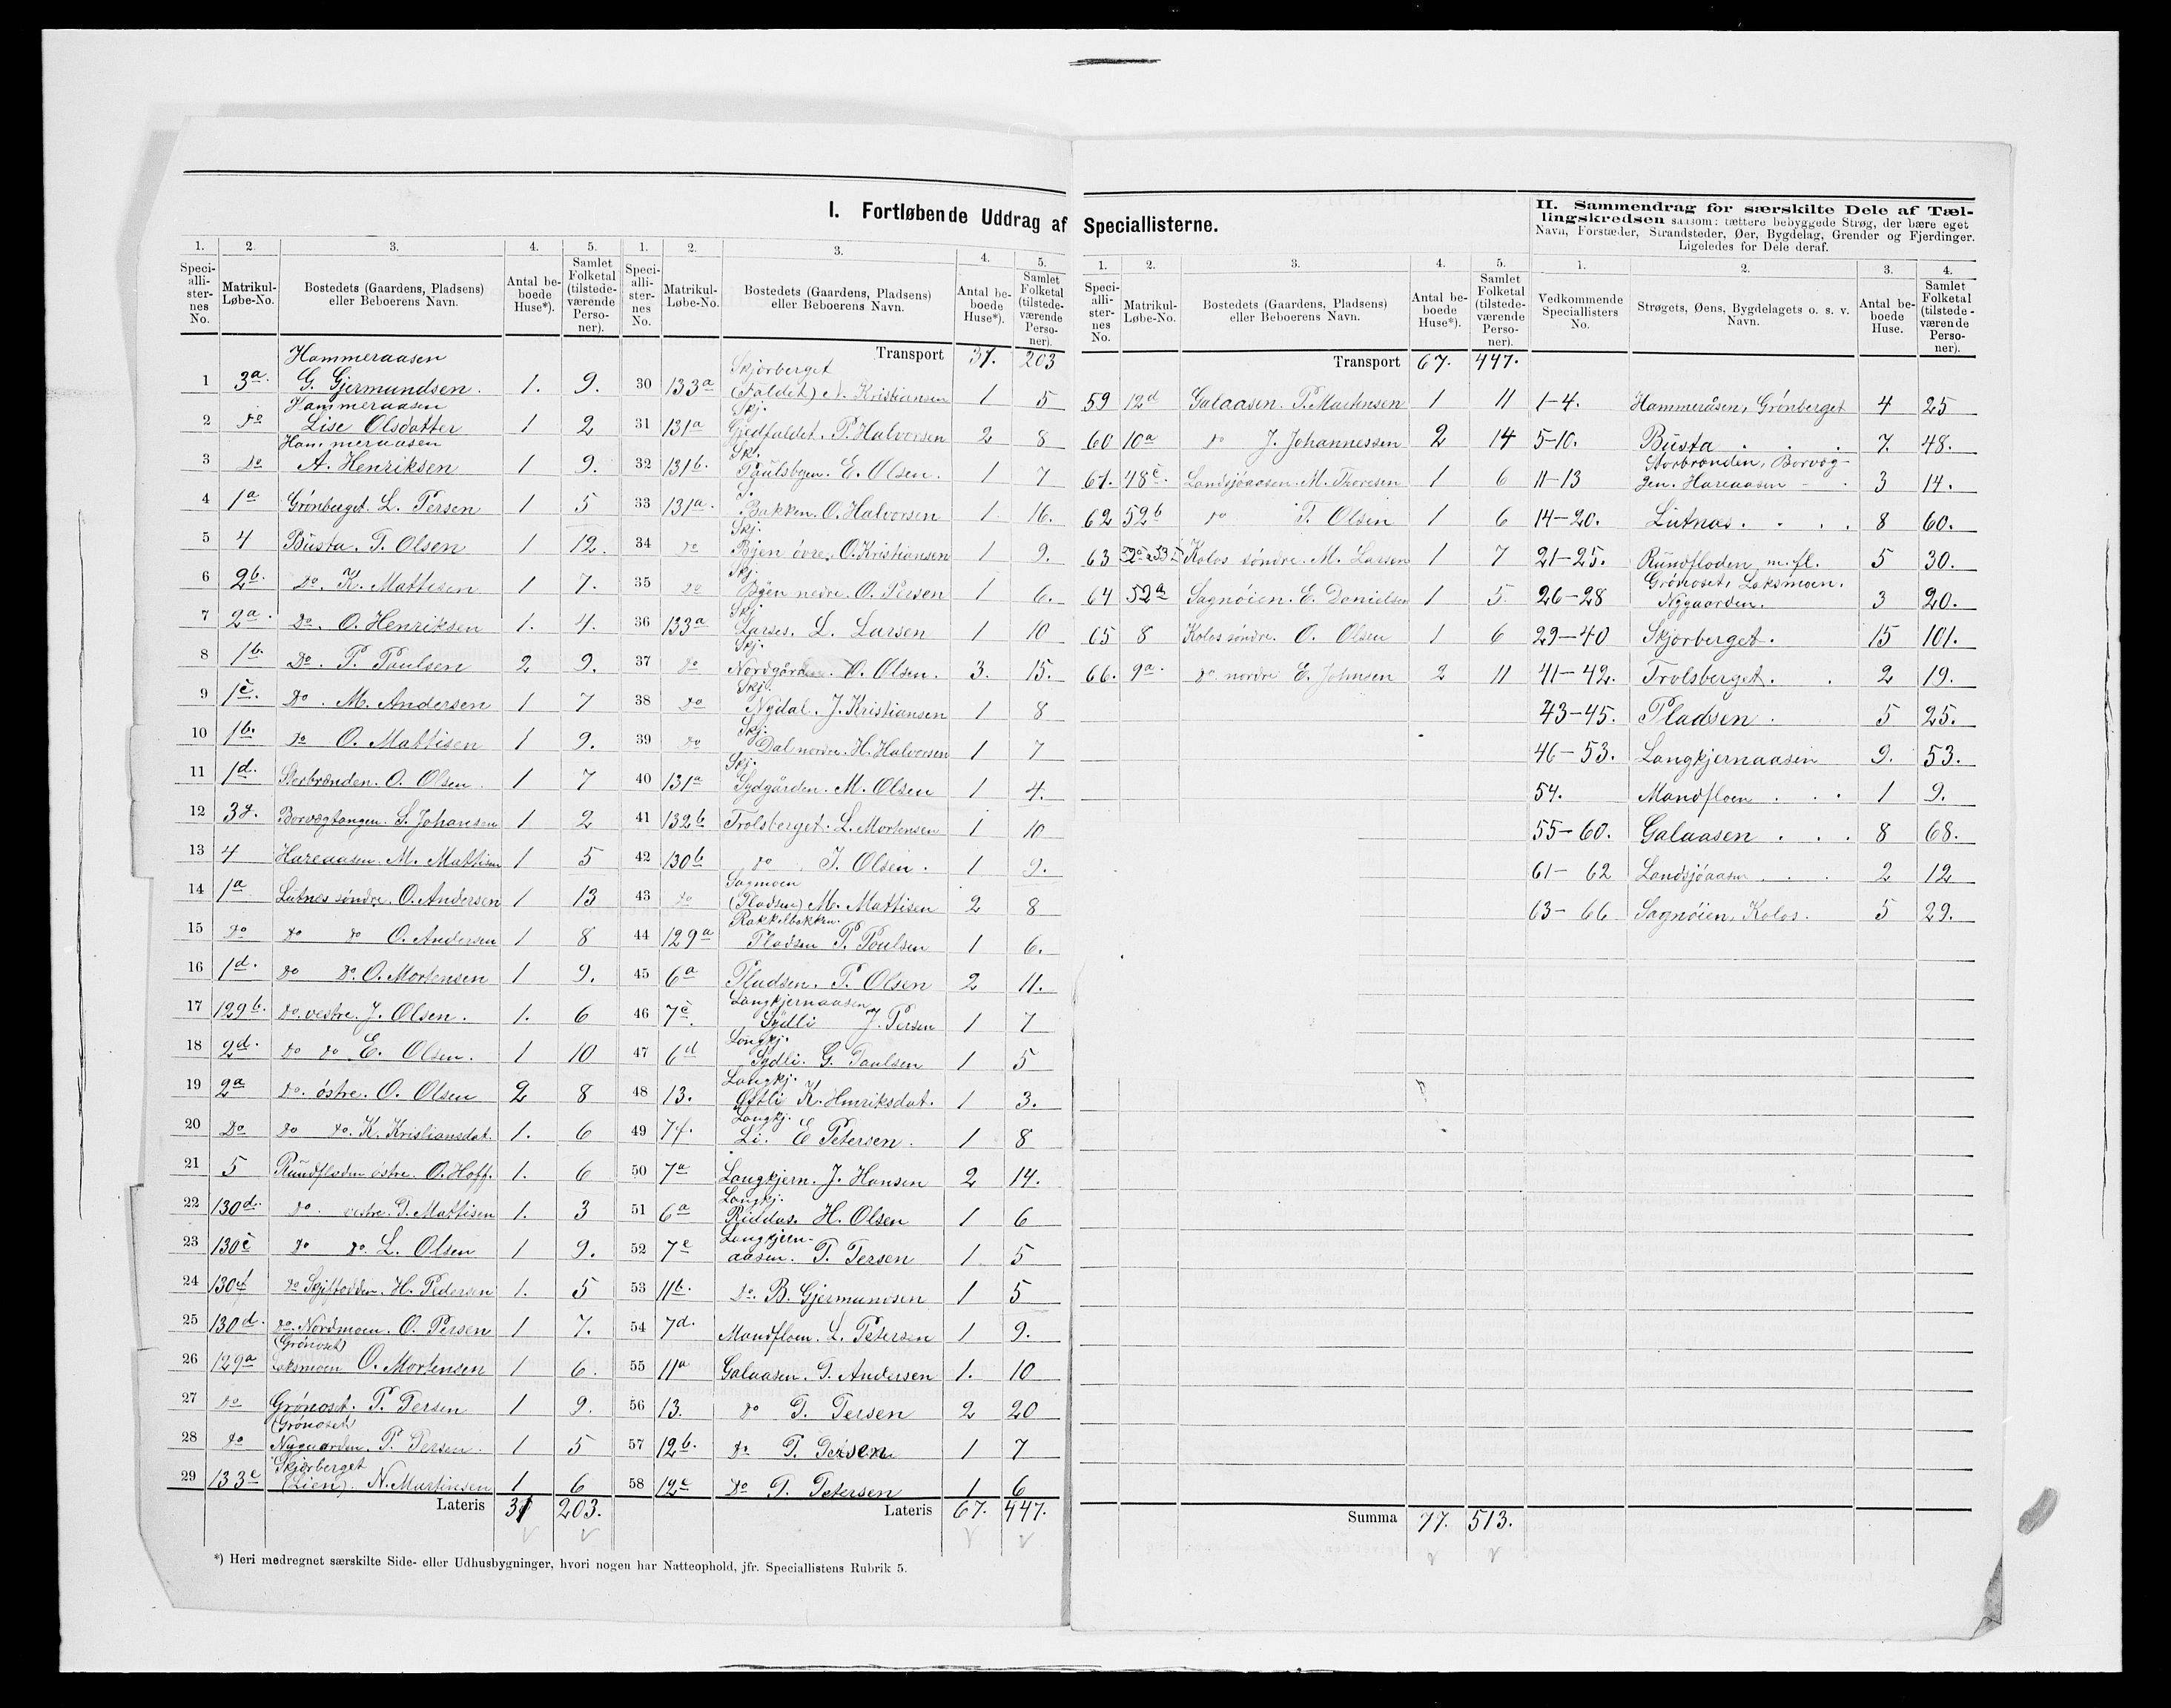 I. Fortløbende Uddrag af Speciallisterne.
II. Sammendrag for særskilte Dele af Tæl-
lingskredsen saasom: tættere bebyggede Strøg, der bære eget
Navn, Forstæder, Strandsteder, Øer, Bygdelag, Grender og Fjerdinger.
Ligeledes for Dele deraf.
1. 2. 3. 4. 5.
Speci-
alli-
ster-
nes
No.
Matrikul-
Løbe-No.
Bostedets (Gaardens, Pladsens)
eller Beboerens Navn.
Antal be-
boede
Huse*).
Samlet
Folketal
(tilstede-
værende
Perso-
ner).
Hammeraasen
1 3a. G. Gjermundsen. 1. 9.
Hammeraasen
2 do Lise Olsdatter 1 2
Hammeraasen
3 do A. Henriksen 1 9.
4 1a Grønberget. L. Persen 1 5
5 4 Busta. T. Olsen 1 12.
6 2b. do. K. Mattisen 1 7.
7 2a. do. O. Henriksen 1. 4.
8 1b. Do. P. Poulsen 2 9.
9 1c. Do. M. Andersen 1 7
10 1b. do O. Mattisen 1 9.
11 1d. Storbrænden. O. Olsen. 1 7
12 Borvægtangen. S. Johansen 1 2
13 4 Hareaasen. M. Mattisen 1 5
14 1a Lutnes søndre. O. Andersen 1 13
15 do do do O. Andersen 1 8
16 1d. do do. O. Mortensen 1 9.
17 129b. do. vestre. J. Olsen. 1. 6
18 2d. do do E. Olsen. 1 10
19 2a do. østre. O. Olsen 2 8
20 do do do. K. Kristiansdat. 1. 6
21 5 Rundfloden østre. O. Hoff. 1. 6
22 130d. do. vestre. P. Mattisen 1. 3
23 130c do do. L. Olsen 1 9.
24 130f do H. Pedersen 1. 5
25 130d. do. Nordmoen. O. Persen 1 7.
(Grønoset)
26 129a Loksmoen O. Mortensen 1 6.
27 do Grønoset. P. Persen 1 9.
(Grønoset)
28 do Nygaarden. P. Persen. 1 5
Skjørberget
29 133c (Lien). N. Martinsen 1 6
Lateris 31 203.
1. 2. 3. 4. 5.
Speci-
alli-
ster-
nes
No.
Matrikul-
Løbe-No.
Bostedets (Gaardens, Pladsens)
eller Beboerens Navn.
Antal be-
boede
Huse*).
Samlet
Folketal
(tilstede-
værende
Perso-
ner).
Transport 31. 203
Skjørberget
30 133a (Faldet) N. Kristiansen 1 5
Skj.
31 131a Gjedfaldet. P. Halvorsen 2 8
32 131b. E. Olsen. 1 7
33 131a. Bakken. O. Halvorsen 1. 16.
Skj.
34 do Byen øvre. O. Kristiansen 1 9.
Skj.
35 do Byen nedre. O. Persen 1 6.
Skj.
36 133a Larses. L. Larsen 1 10
Skj.
37 do Nordgården. O. Olsen. 3. 15.
Skj.
38 do Nydal. J. Kristiansen 1 8
Skj.
39 do Dal nordre. H. Halvorsen 1 7
Skj.
40 131a Sydgården. M. Olsen 1 4.
41 132b Trolsberget. L. Mortensen 1 10
42 130b do J. Olsen. 1 9.
Sagmoen
43 do (Pladsen) M. Mattisen 2 8
Rakkelbakken.
44 129a Pladsen P. Poulsen 1 6.
45 6a Pladsen. P. Olsen 2 11.
Langkjernaasen
46 7c. Sydli J. Persen 1 7
Langkj.
47 6d Sydli. G. Poulsen 1 5
Langkj.
48 13. Østli K. Henriksdat. 1 3.
Langkj.
49 7f. Li. E Petersen. 1 8
50 7a Langkjern. J. Hansen 2 14.
Langkj.
51 6a H. Olsen 1 6
Langkjern-
52 7e aasen. P. Persen 1 5
53 11b. do. B. Gjermundsen 1 5
54 7d. Mandfloen. L. Petersen 1 9.
55 11a Galaasen. P. Andersen 1. 10
56 13. do P. Persen 2 20
57 12b. do P. Persen 1 7
58 12c do P. Petersen 1 6
Lateris 67. 447.
1. 2. 3. 4. 5.
Speci-
alli-
ster-
nes
No.
Matrikul-
Løbe-No.
Bostedets (Gaardens, Pladsens)
eller Beboerens Navn.
Antal be-
boede
Huse*).
Samlet
Folketal
(tilstede-
værende
Perso-
ner).
Transport 67. 447.
59 12d Galaasen. P. Mortensen 1 11
60 10a do J. Johannessen 2 14
61. 48c. Landsjøaasen. M. Thoresen 1 6
62 52b do T. Olsen 1 6
63 Kolos søndre. M. Larsen 1 7
64 52a Sagnøien. E. Danielsen 1 5.
65 8 Kolos søndre. O. Olsen 1 6
66. 9a. do nordre E. Johnsen 2 11
Summa 77. 513.
1. 2. 3. 4.
Vedkommende
Speciallisters
No.
Strøgets, Øens, Bygdelagets o. s. v.
Navn.
Antal be-
boede
Huse.
Samlet
Folketal
(tilstede-
værende
Perso-
ner).
1-4. Hammeråsen, Grønberget 4 25
5-10. Busta . . . 7. 48.
Storbrænden, Borvæg-
11-13 gen. Hareaasen 3 14.
14-20. Lutnes. . . . 8 60.
21-25. Rundfloden m. fl. 5 30.
Grønoset, Loksmoen.
26-28 Nygaarden. 3 20.
29-40 Skjørberget. 15 101.
41-42. Trolsberget. . 2 19.
43-45. Pladsen . 5 25.
46-53. Langkjernaasen 9. 53.
54. Mandfloen . . . 1 9.
55-60. Galaasen . . . 8 68.
61- 62 Landsjøaasen . . . 2 12
63- 66 Sagnøien, Kolos. 5 29.
*) Heri medregnet særskilte Side- eller Udhusbygninger, hvori nogen har Natteophold, jfr. Speciallistens Rubrik 5.